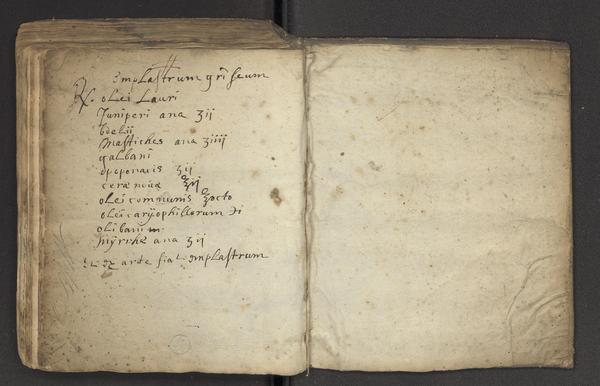 Emplastrum griseum
℞. olei Lauri
Juniperi ana ʒii
bdelii
Mastiches ana ʒiiii
galbani
opoponacis ʒii
ceræ novæ ℥ii
olei communis ℥octo
olei caryophillorum ℈i
olibani
myrrhæ ana ʒii
ex arte fiat emplastrum